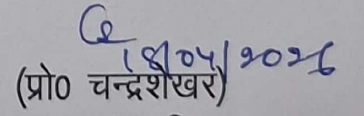 18/04/2026
(प्रो० चन्द्रशेखर)